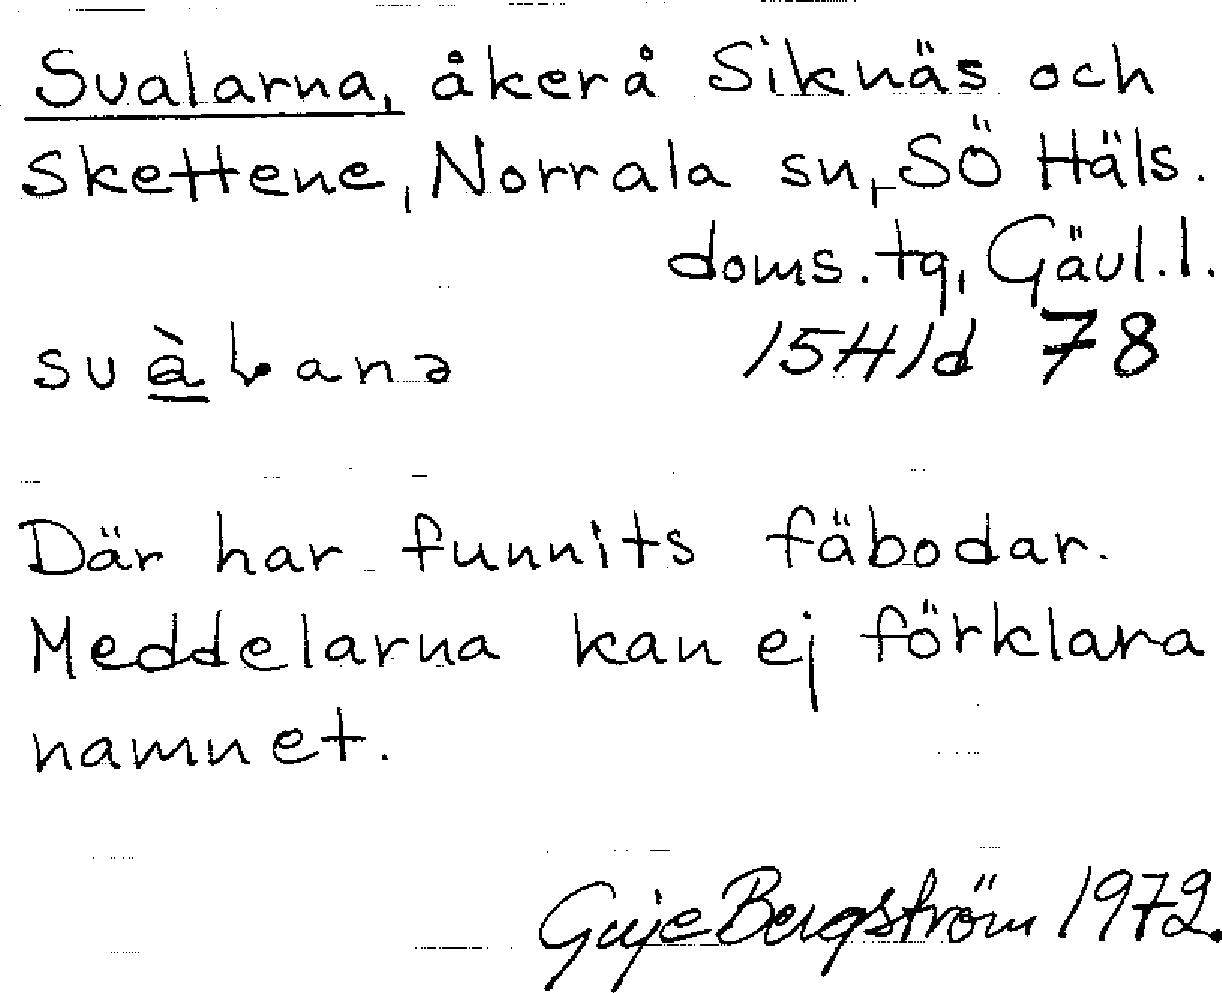 Svalarna, åker å Siknäs och
Skettene, Norrala sn, SÖ Häls.
doms. tg, Gävl. l.
svàɫanə 15H1d 78
Där har funnits fäbodar.
Meddelarna kan ej förklara
namnet.
Bergström 1972.